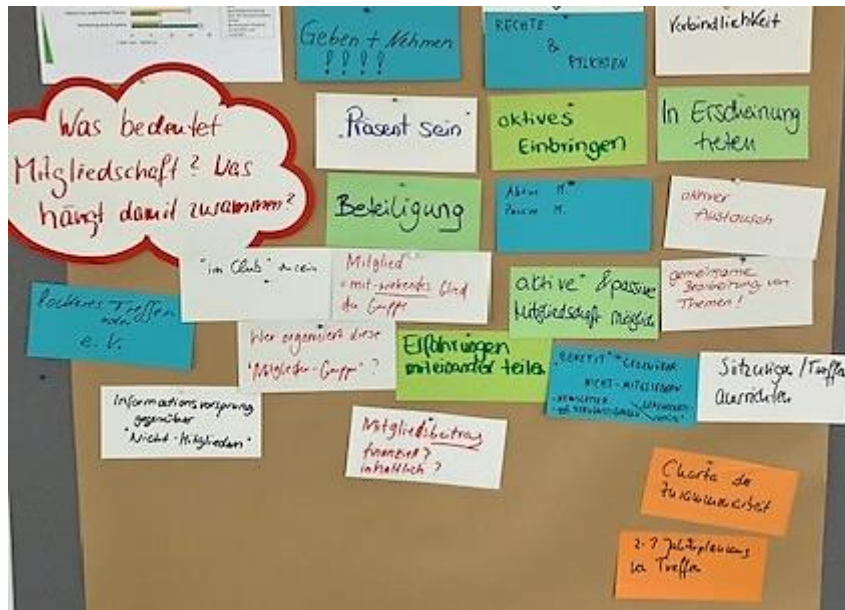 Geben + Nehmen
! ! ! !
RECHTE
&
PFLICHTEN
Verbindlichkeit
Was bedeutet
Mitgliedschaft? Was
hängt damit zusammen?
"Präsent sein"
aktives
Einbringen
In Erscheinung
treten
Beteiligung
Aktive M.
Passive M.
aktiver
Austausch
"im Club" zu sein
Mitglied
= mit-wirkendes Glied
der Gruppe
aktive & passive
Mitgliedschaft möglich
gemeinsame
Bearbeitung von
Themen!
lockeres Treffen
oder
e. V.
Wer organisiert diese
"Mitglieder-Gruppe"?
Erfahrungen
miteinander teilen
"BENEFIT" GEGENÜBER
NICHT-MITGLIEDERN
- NEWSLETTER
Sitzungen / Treffen
Ausrichten
Informationsvorsprung
gegenüber
"Nicht-Mitgliedern"
Mitgliedsbeitrag
finanziell?
inhaltlich?
Charta der
Zusammenarbeit
Treffen